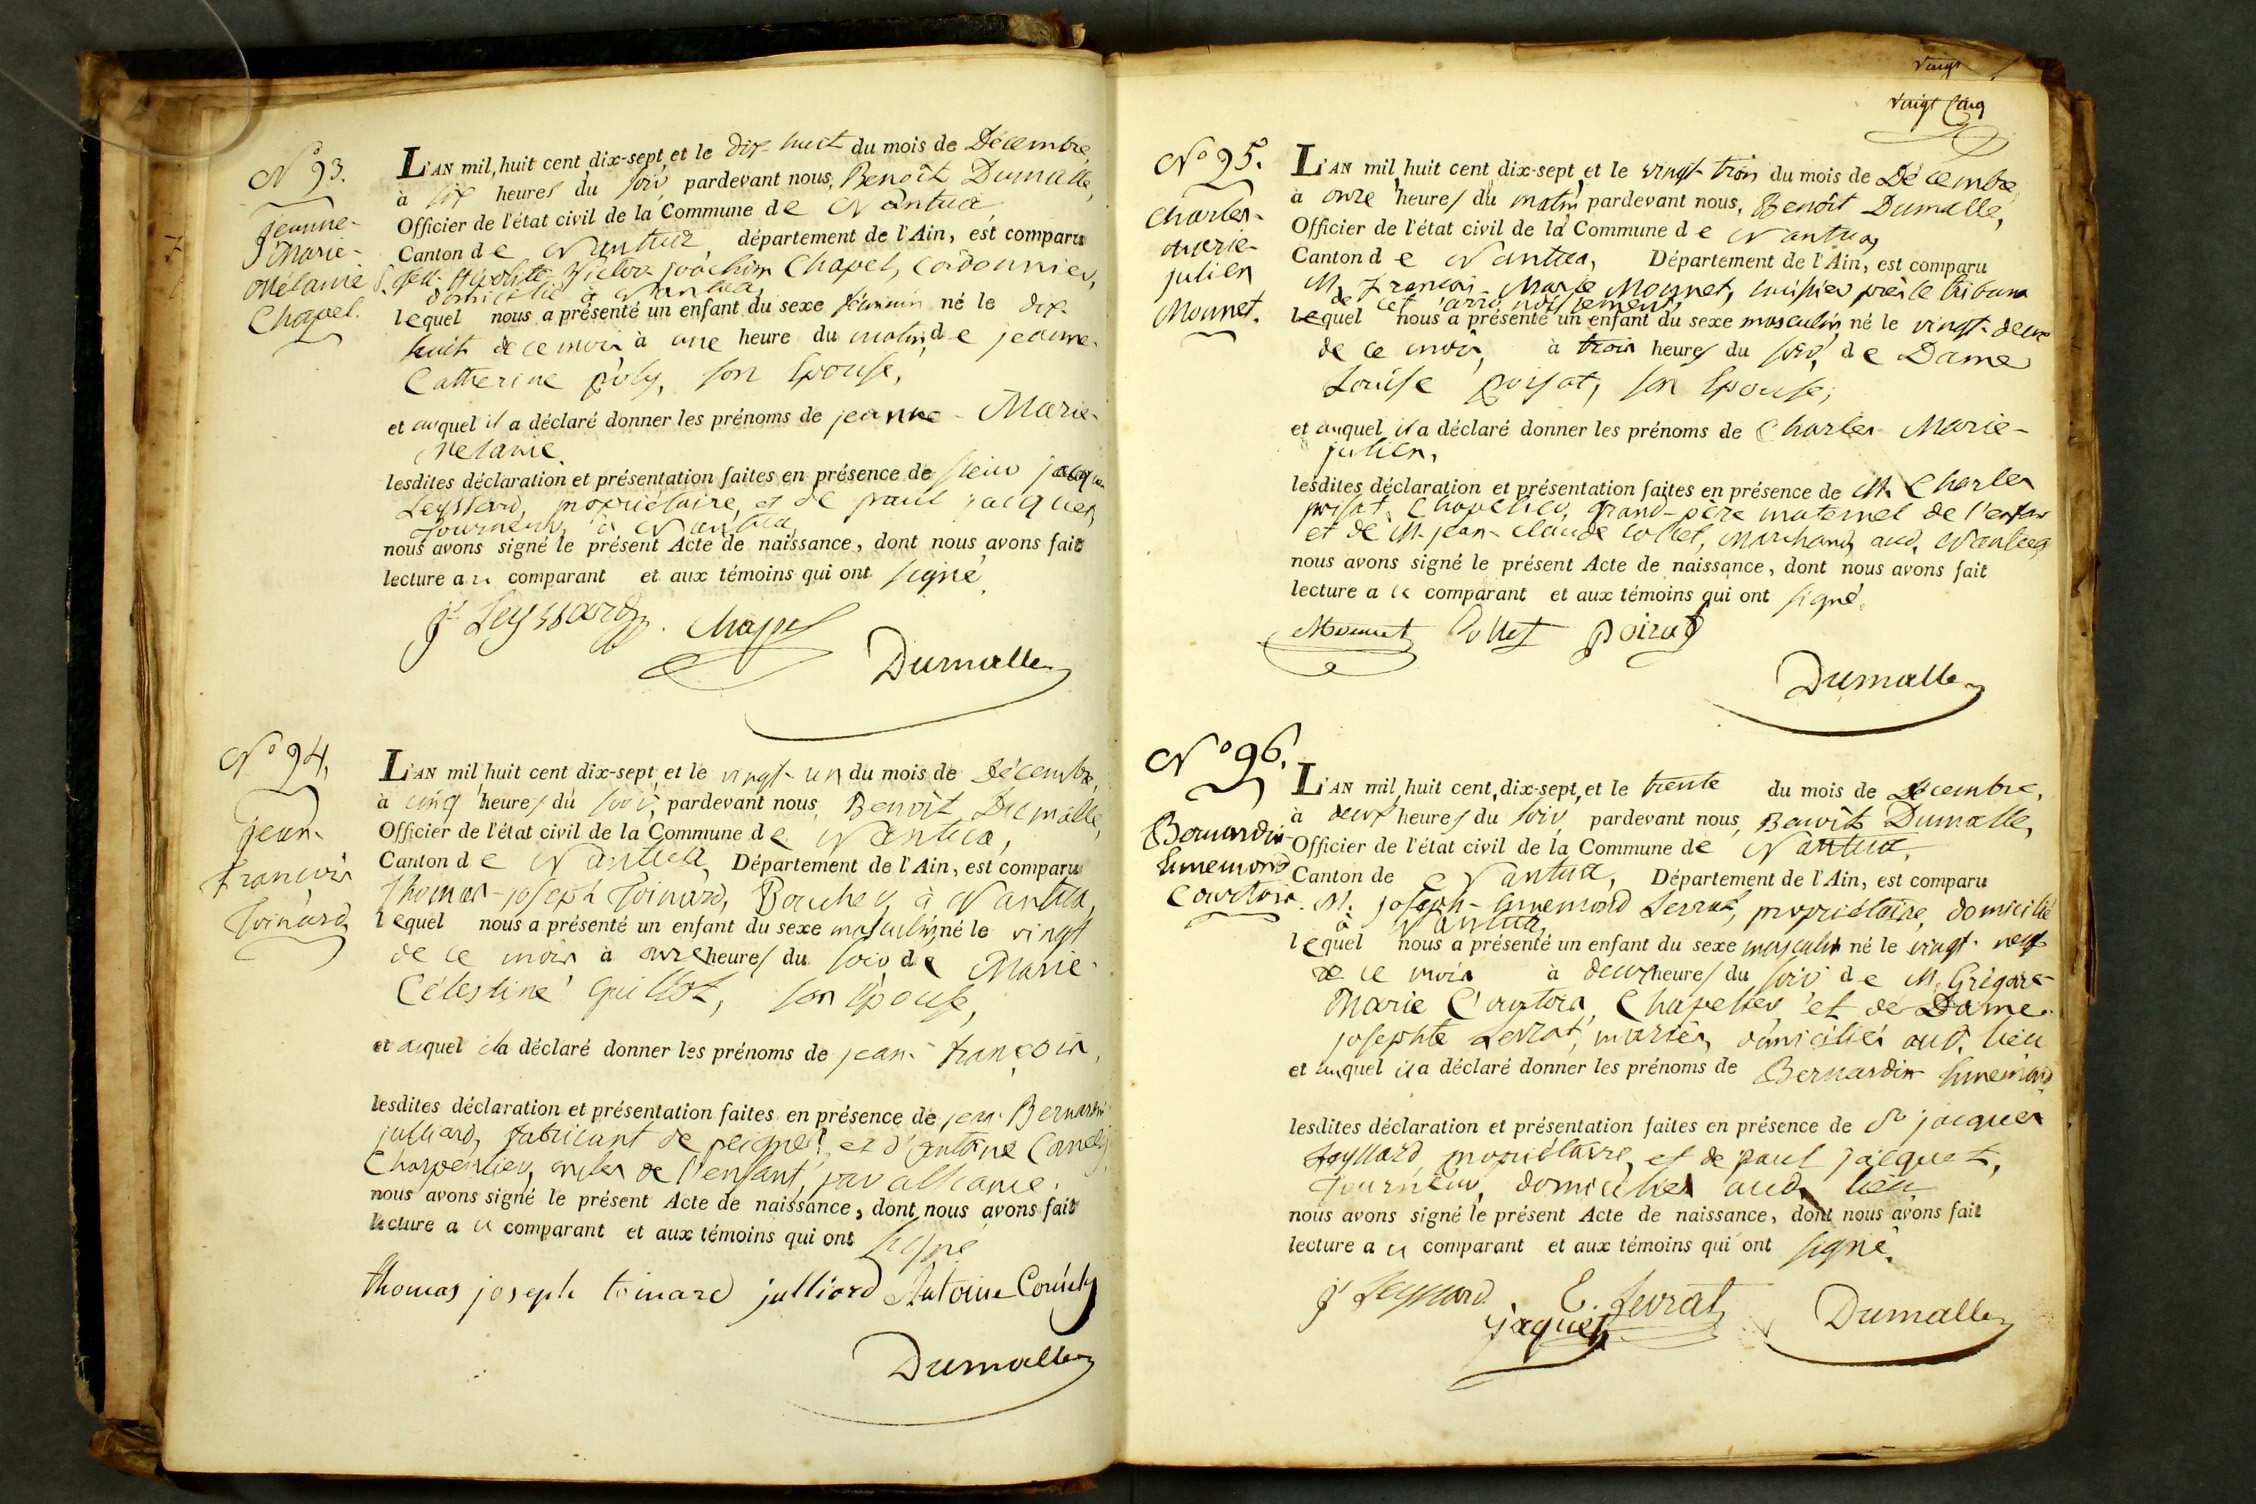 N° 93.
Jeanne-
Marie-
Mélanie
Chapel.
L'AN mil huit cent dix-sept et le dix huit du mois de Décembre,
à six heures du soir pardevant nous, Benoît Dumalle,
Officier de l'état civil de la Commune de Nantua
Canton de Nantua département de l'Ain, est comparu
Victor joachim Chapel, Cordonnier,
domicilié à Nantua,
lequel nous a présenté un enfant du sexe féminin né le dix-
huit de ce mois à une heure du matin, de jeanne-
Catherine poly, son Epouse,
et auquel il a déclaré donner les prénoms de jeanne-Marie-
Melanie.
lesdites déclaration et présentation faites en présence de sieur jacques
Leyssard, propriétaire, et de paul jacquet,
Tourneur, à Nantua,
nous avons signé le présent Acte de naissance, dont nous avons fait
lecture au comparant et aux témoins qui ont signé.
js Leyssard Chapel
Dumalle
N° 94.
jean-
François
Toinard
L'AN mil huit cent dix-sept et le vingt-un du mois de Décembre,
à cinq heures du soir, pardevant nous Benoît Dumalle,
Officier de l'état civil de la Commune de Nantua,
Canton de Nantua, Département de l'Ain, est comparu
Thomas-joseph Toinard, Boucher, à Nantua,
lequel nous a présenté un enfant du sexe masculin, né le vingt
de ce mois à onze heures du soir, de Marie-
Célestine Guillot, son Epouse,
et auquel il a déclaré donner les prénoms de jean-françois,
lesdites déclaration et présentation faites en présence de jean-Bernardin
julliard, fabricant de peignes, et d'antoine Cornely,
Charpentier, oncles de l'enfant, par alliance.
nous avons signé le présent Acte de naissance, dont nous avons fait
lecture au comparant et aux témoins qui ont signé
thomas joseph toinard julliard Antoine Cornely
Dumalle
vingt
vingt Cinq
N° 95.
Charles-
Marie-
julien
Monnet.
L'AN mil huit cent dix-sept et le vingt-trois du mois de Décembre
à onze heures du matin pardevant nous, Benoît Dumalle,
Officier de l'état civil de la Commune de Nantua,
Canton de Nantua, Département de l'Ain, est comparu
M. François-Marie Monnet, huissier près le tribunal
de cet arrondissement,
lequel nous a présenté un enfant du sexe masculin, né le vingt-deux
de ce mois, à trois heures du soir, de Dame
Louise poisat, son Epouse,
et auquel il a déclaré donner les prénoms de Charles-Marie-
julien.
lesdites déclaration et présentation faites en présence de M. Charles
poisat, Chapelier, grand-père maternel de l'enfant
et de M. jean-claude Collet, Marchand, aud. Nantua,
nous avons signé le présent Acte de naissance, dont nous avons fait
lecture au comparant et aux témoins qui ont signé.
Monnet Collet poizat
Dumalle
N° 96.
Bernardin-
Ennemond
Courtois.
L'AN mil huit cent, dix-sept, et le trente du mois de Décembre,
à deux heures du soir, pardevant nous, Benoît Dumalle,
Officier de l'état civil de la Commune de Nantua,
Canton de Nantua, Département de l'Ain, est comparu
M. joseph-Ennemond Levrat, propriétaire, domicilié
à Nantua,
lequel nous a présenté un enfant du sexe masculin né le vingt-neuf
de ce mois à deux heures du soir de M. Grégoire-
Marie Chapelier et de Dame
josephte Levrat, mariés, domiciliés aud. lieu
et auquel il a déclaré donner les prénoms de Bernardin-Ennemond
lesdites déclaration et présentation faites en présence de Sr jacques
Leyssard, propriétaire, et de paul jacquet,
Tourneur, domiciliés aud. lieu
nous avons signé le présent Acte de naissance, dont nous avons fait
lecture au comparant et aux témoins qui ont signé.
js Leyssard E. Levrat
jaquet Dumalle